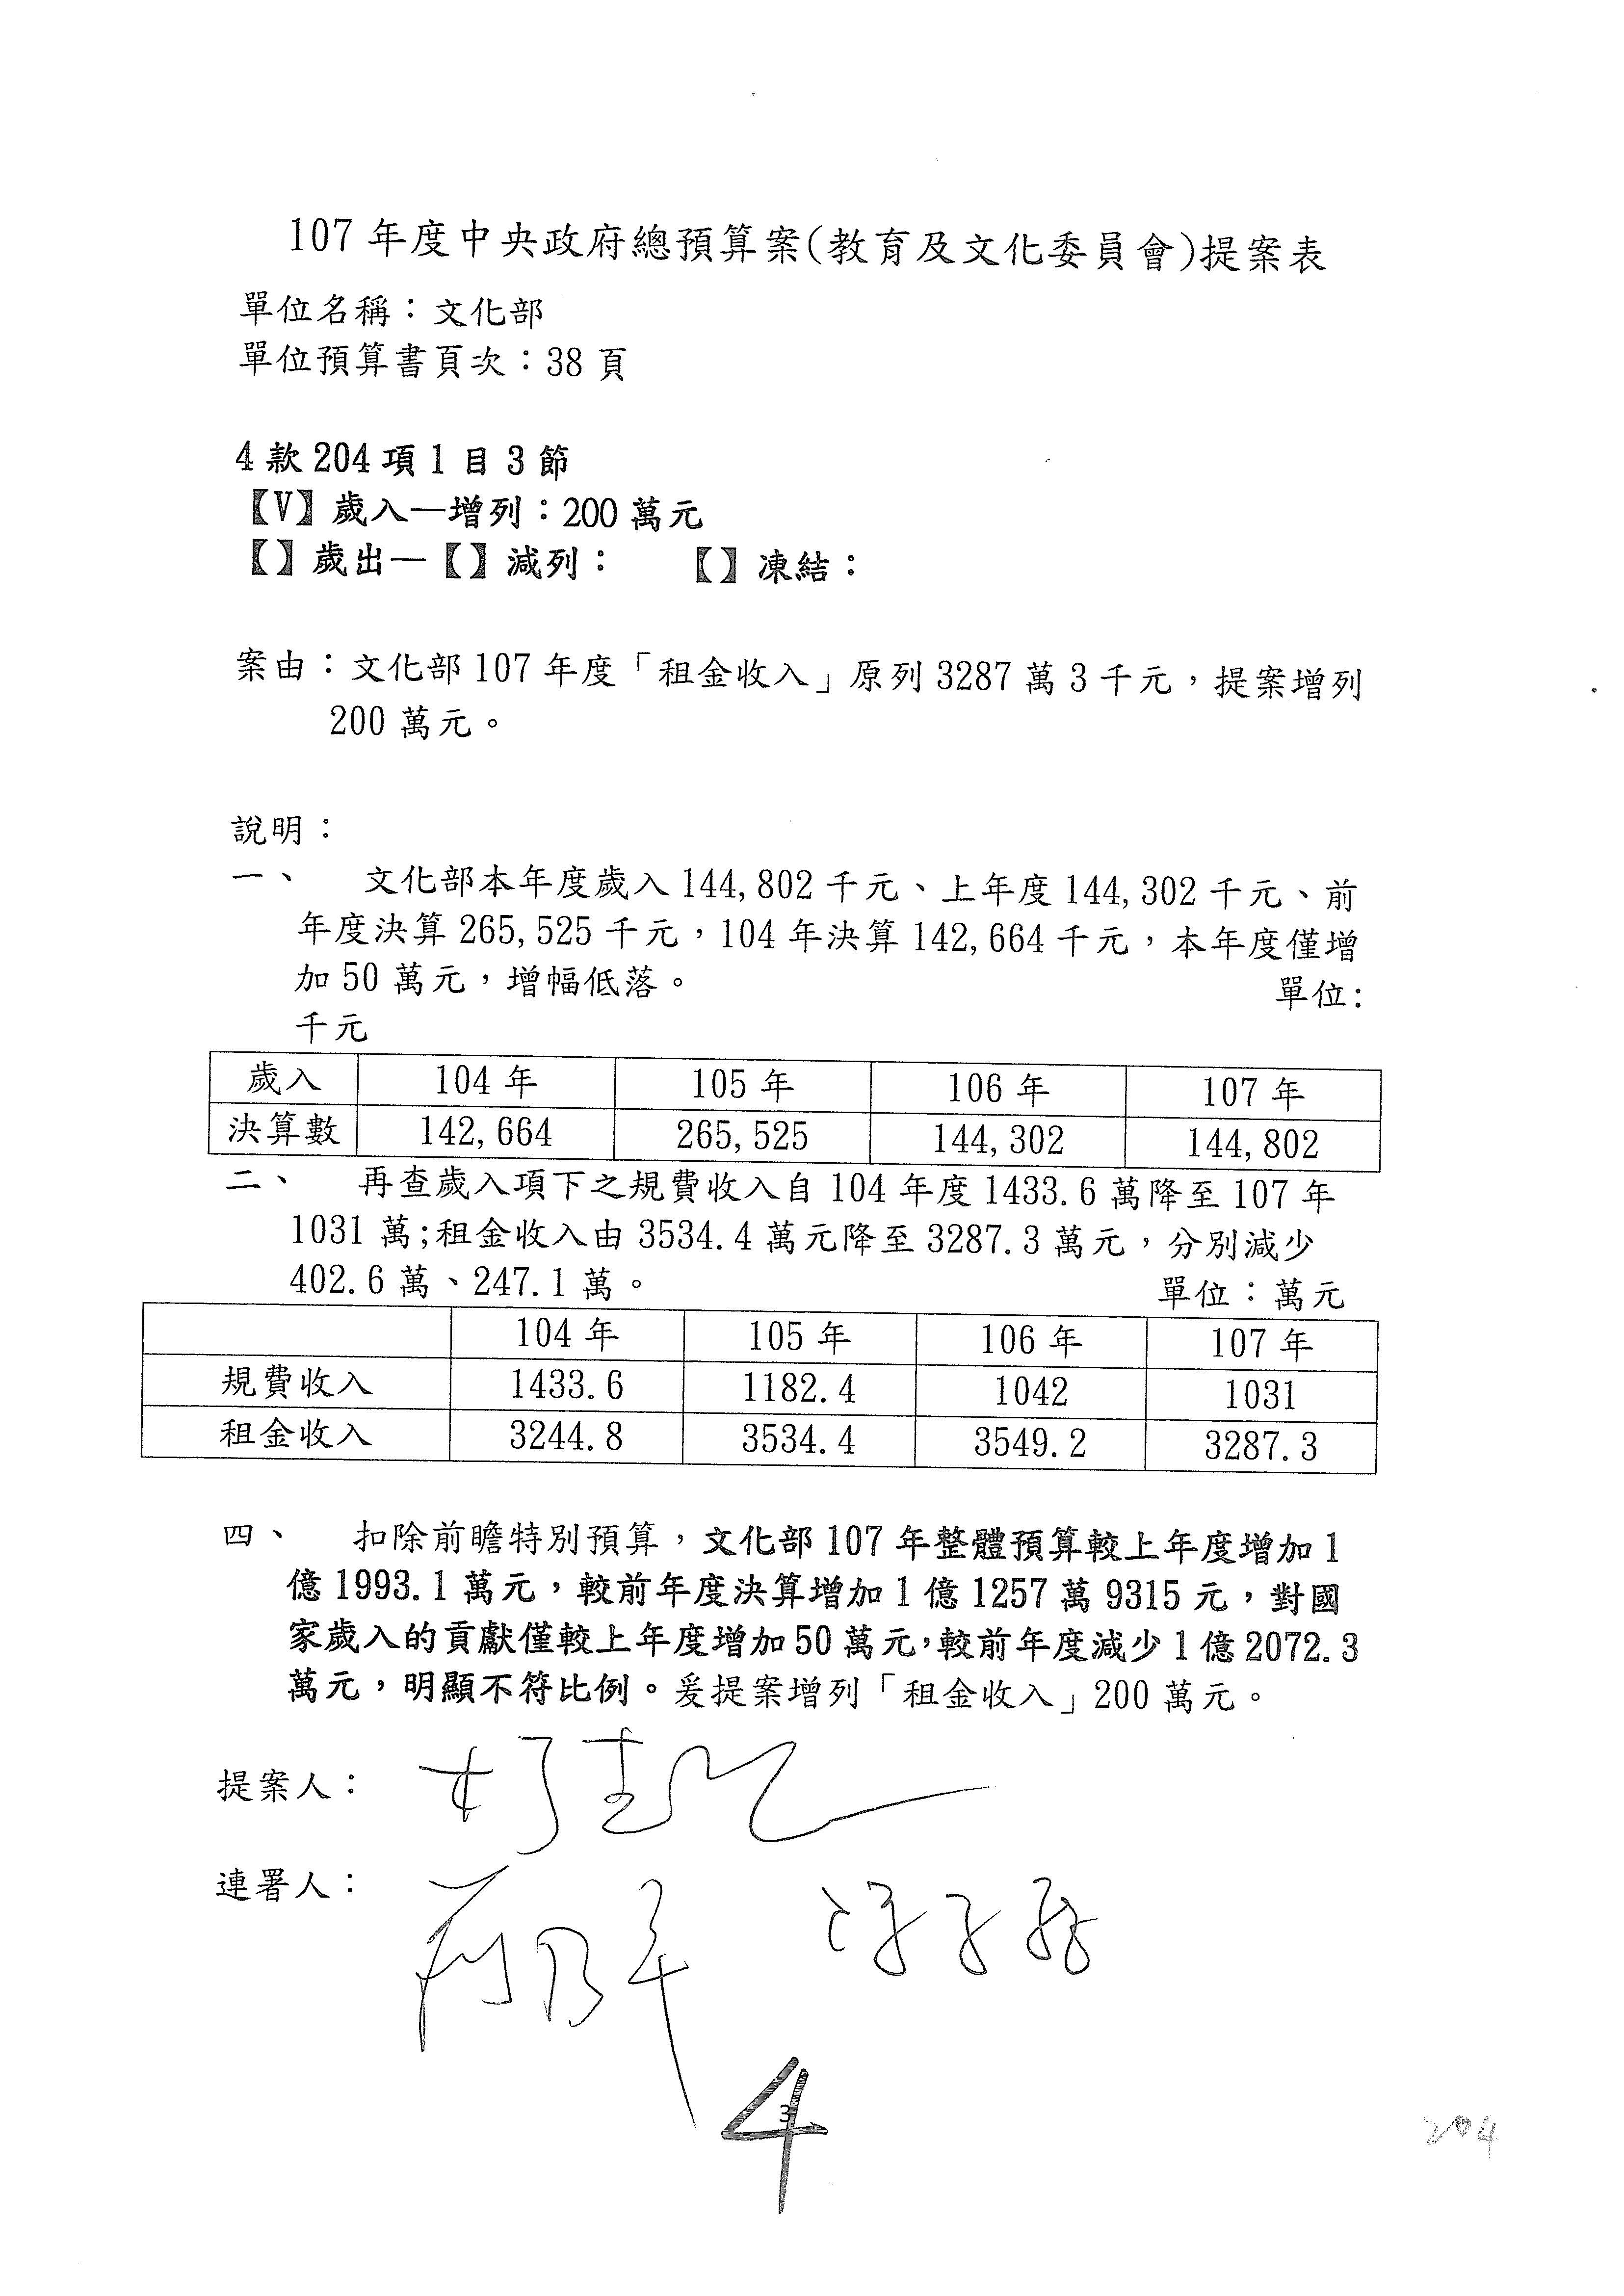 107年度中央政府總預算案(教育及文化委員會)提案表
單位名稱：文化部
單位預算書頁次：38頁
4款204項1目3節
【V】歲入—增列：200萬元
【】歲出—【】減列： 【】凍結：
案由：文化部107年度「租金收入」原列3287萬3千元，提案增列
200萬元。
說明：
一、 文化部本年度歲入144,802千元、上年度144,302千元、前
年度決算265,525千元，104年決算142,664千元，本年度僅增
加50萬元，增幅低落。 單位:
千元
歲入 104年 105年 106年 107年
決算數 142,664 265,525 144,302 144,802
二、 再查歲入項下之規費收入自104年度1433.6萬降至107年
1031萬;租金收入由3534.4萬元降至3287.3萬元，分別減少
402.6萬、247.1萬。 單位：萬元
104年 105年 106年 107年
規費收入 1433.6 1182.4 1042 1031
租金收入 3244.8 3534.4 3549.2 3287.3
四、 扣除前瞻特別預算，文化部107年整體預算較上年度增加1
億1993.1萬元，較前年度決算增加1億1257萬9315元，對國
家歲入的貢獻僅較上年度增加50萬元，較前年度減少1億2072.3
萬元，明顯不符比例。爰提案增列「租金收入」200萬元。
提案人：
連署人：
3
4
204